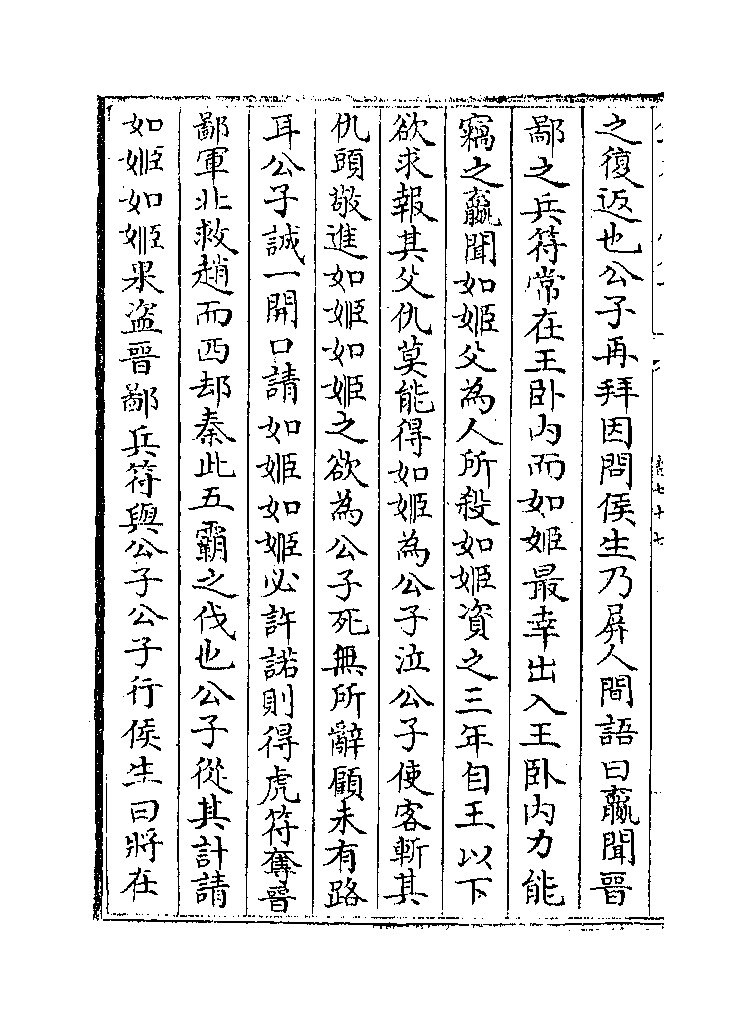 之復返也公子再拜因問侯生乃屏人間語曰嬴聞晉
鄙之兵符常在王卧内而如姬最幸出入王卧内力能
竊之嬴聞如姬父為人所殺如姬資之三年自王以下
欲求報其父仇莫能得如姬為公子泣公子使客斬其
仇頭敬進如姬如姬之欲為公子死無所辭顧未有路
耳公子誠一開口請如姬如姬必許諾則得虎符奪晉
鄙軍北救趙而西却秦此五霸之伐也公子從其計請
如姬如姬果盗晉鄙兵符與公子公子行侯生曰將在